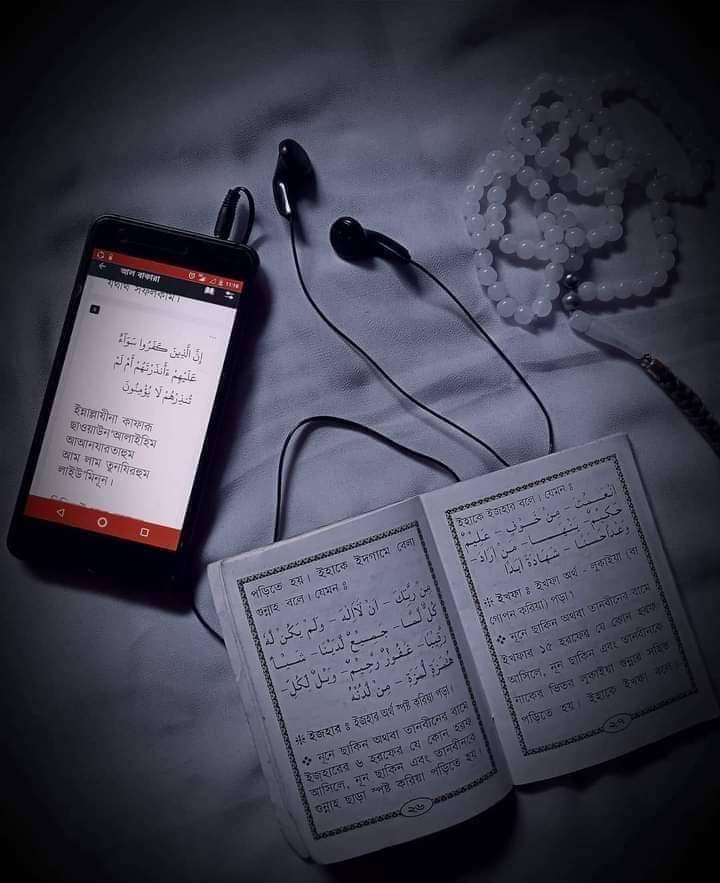 11:16
আল বাকারা
إِنَّ الَّذِينَ كَفَرُوا سَوَآءٌ
عَلَيْهِمْ ءَأَنذَرْتَهُمْ أَمْ لَمْ
تُنذِرْهُمْ لَا يُؤْمِنُونَ
ইন্নাল্লাযীনা কাফারূ
ছাওয়াউন‘আলাইহিম
আআনযারতাহুম
আম লাম তুনযিরহুম
লাইউ’মিনূন।
পড়িতে হয়। ইহাকে ইদগামে বেলা
গুন্নাহ বলে। যেমন ঃ
مِنْ رَّبِّكَ – اَنْ لَّاۤاِلٰهَ – وَلَمْ يَكُنْ لَّهٗ
كُلٌّ لَّمَّا – جَمِيْعٌ لَّدَيْنَا – شَيْئًا
رَقِيْبًا – غَفُوْرٌ رَّحِيْمٌ – وَيْلٌ لِّكُلِّ –
هُمَزَةٍ لُّمَزَةٍ – مِنْ لَّدُنْهُ
❊ ইজহার ঃ ইজহার অর্থ স্পষ্ট করিয়া পড়া।
❖ নূনে ছাকিন অথবা তানবীনের বামে
ইজহারের ৬ হরফের যে কোন হরফ
আসিলে, নূন ছাকিন এবং তানবীনকে
গুন্নাহ ছাড়া স্পষ্ট করিয়া পড়িতে হয়।
২৬
ইহাকে ইজহার বলে। যেমন ঃ
اَنْعَمْتَ – مِنْ خَوْفٍ – عَلِيْمٌ
حَكِيْمٌ – يَنْهٰـــــا – مِنْ اَرَادَ –
❊ ইখফা ঃ ইখফা অর্থ - লুকাইয়া (বা
গোপন করিয়া) পড়া।
❖ নূনে ছাকিন অথবা তানবীনের বামে
ইখফার ১৫ হরফের যে কোন হরফ
আসিলে, নূন ছাকিন এবং তানবীনকে
নাকের ভিতর লুকাইয়া গুন্নার সহিত
পড়িতে হয়। ইহাকে ইখফা বলে।
২৭